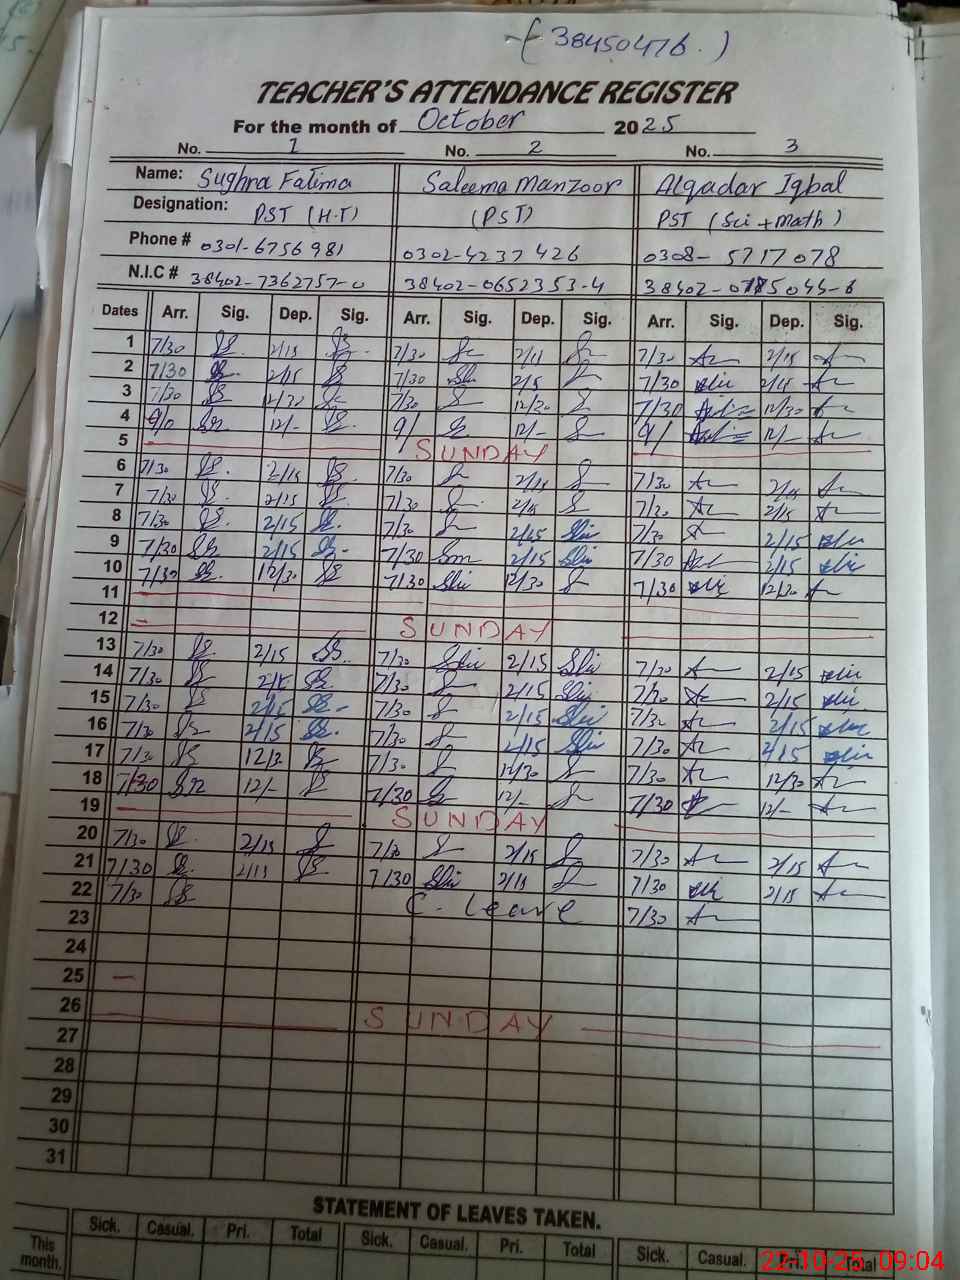 (38450476.)
TEACHER'S ATTENDANCE REGISTER
For the month of October 2025
No. 1 No. 2 No. 3
Name: Sughra Fatima Saleema Manzoor Alqadar Iqbal
Designation: PST (H-T) (PST) PST (Sci + Math)
Phone # 0301-6756981 0302-4237426 0308-5717078
N.I.C # 38402-7362757-0 38402-0652353-4 38402-
Dates Arr. Sig. Dep. Sig. Arr. Sig. Dep. Sig. Arr. Sig. Dep. Sig.
1 7/30 2/15 7/30 2/15 7/30 2/15
2 7/30 2/15 7/30 2/15 7/30
3 7/30 12/30 7/30 12/30 7/30 12/30
4 9/0 12/- 9/ 12/- 9/ 12/-
5 SUNDAY
6 7/30 2/15 7/30 2/15 7/30
7 7/30 2/15 7/30 2/15 7/30 2/15
8 7/30 2/15 7/30 2/15 7/30 2/15
9 7/30 2/15 7/30 2/15 7/30 2/15
10 7/30 12/30 7/30 12/30 7/30 12/30
11
12 SUNDAY
13 7/30 2/15 7/30 2/15 7/30 2/15
14 7/30 2/15 7/30 2/15 7/30 2/15
15 7/30 2/15 7/30 2/15 7/30 2/15
16 7/30 2/15 7/30 2/15 7/30 2/15
17 7/30 7/30 12/30 7/30 12/30
18 7/30 12/- 7/30 12/- 7/30 12/-
19 SUNDAY
20 7/30 2/15 7/30 2/15 7/30 2/15
21 7/30 2/15 7/30 2/15 7/30 2/15
22 7/30 C. Leave 7/30
23
24
25 -
26 SUNDAY
27
28
29
30
31
STATEMENT OF LEAVES TAKEN.
Sick. Casual. Pri. Total Sick. Casual. Pri. Total Sick. Casual. Pri. Total
This month.
22-10-25 09:04